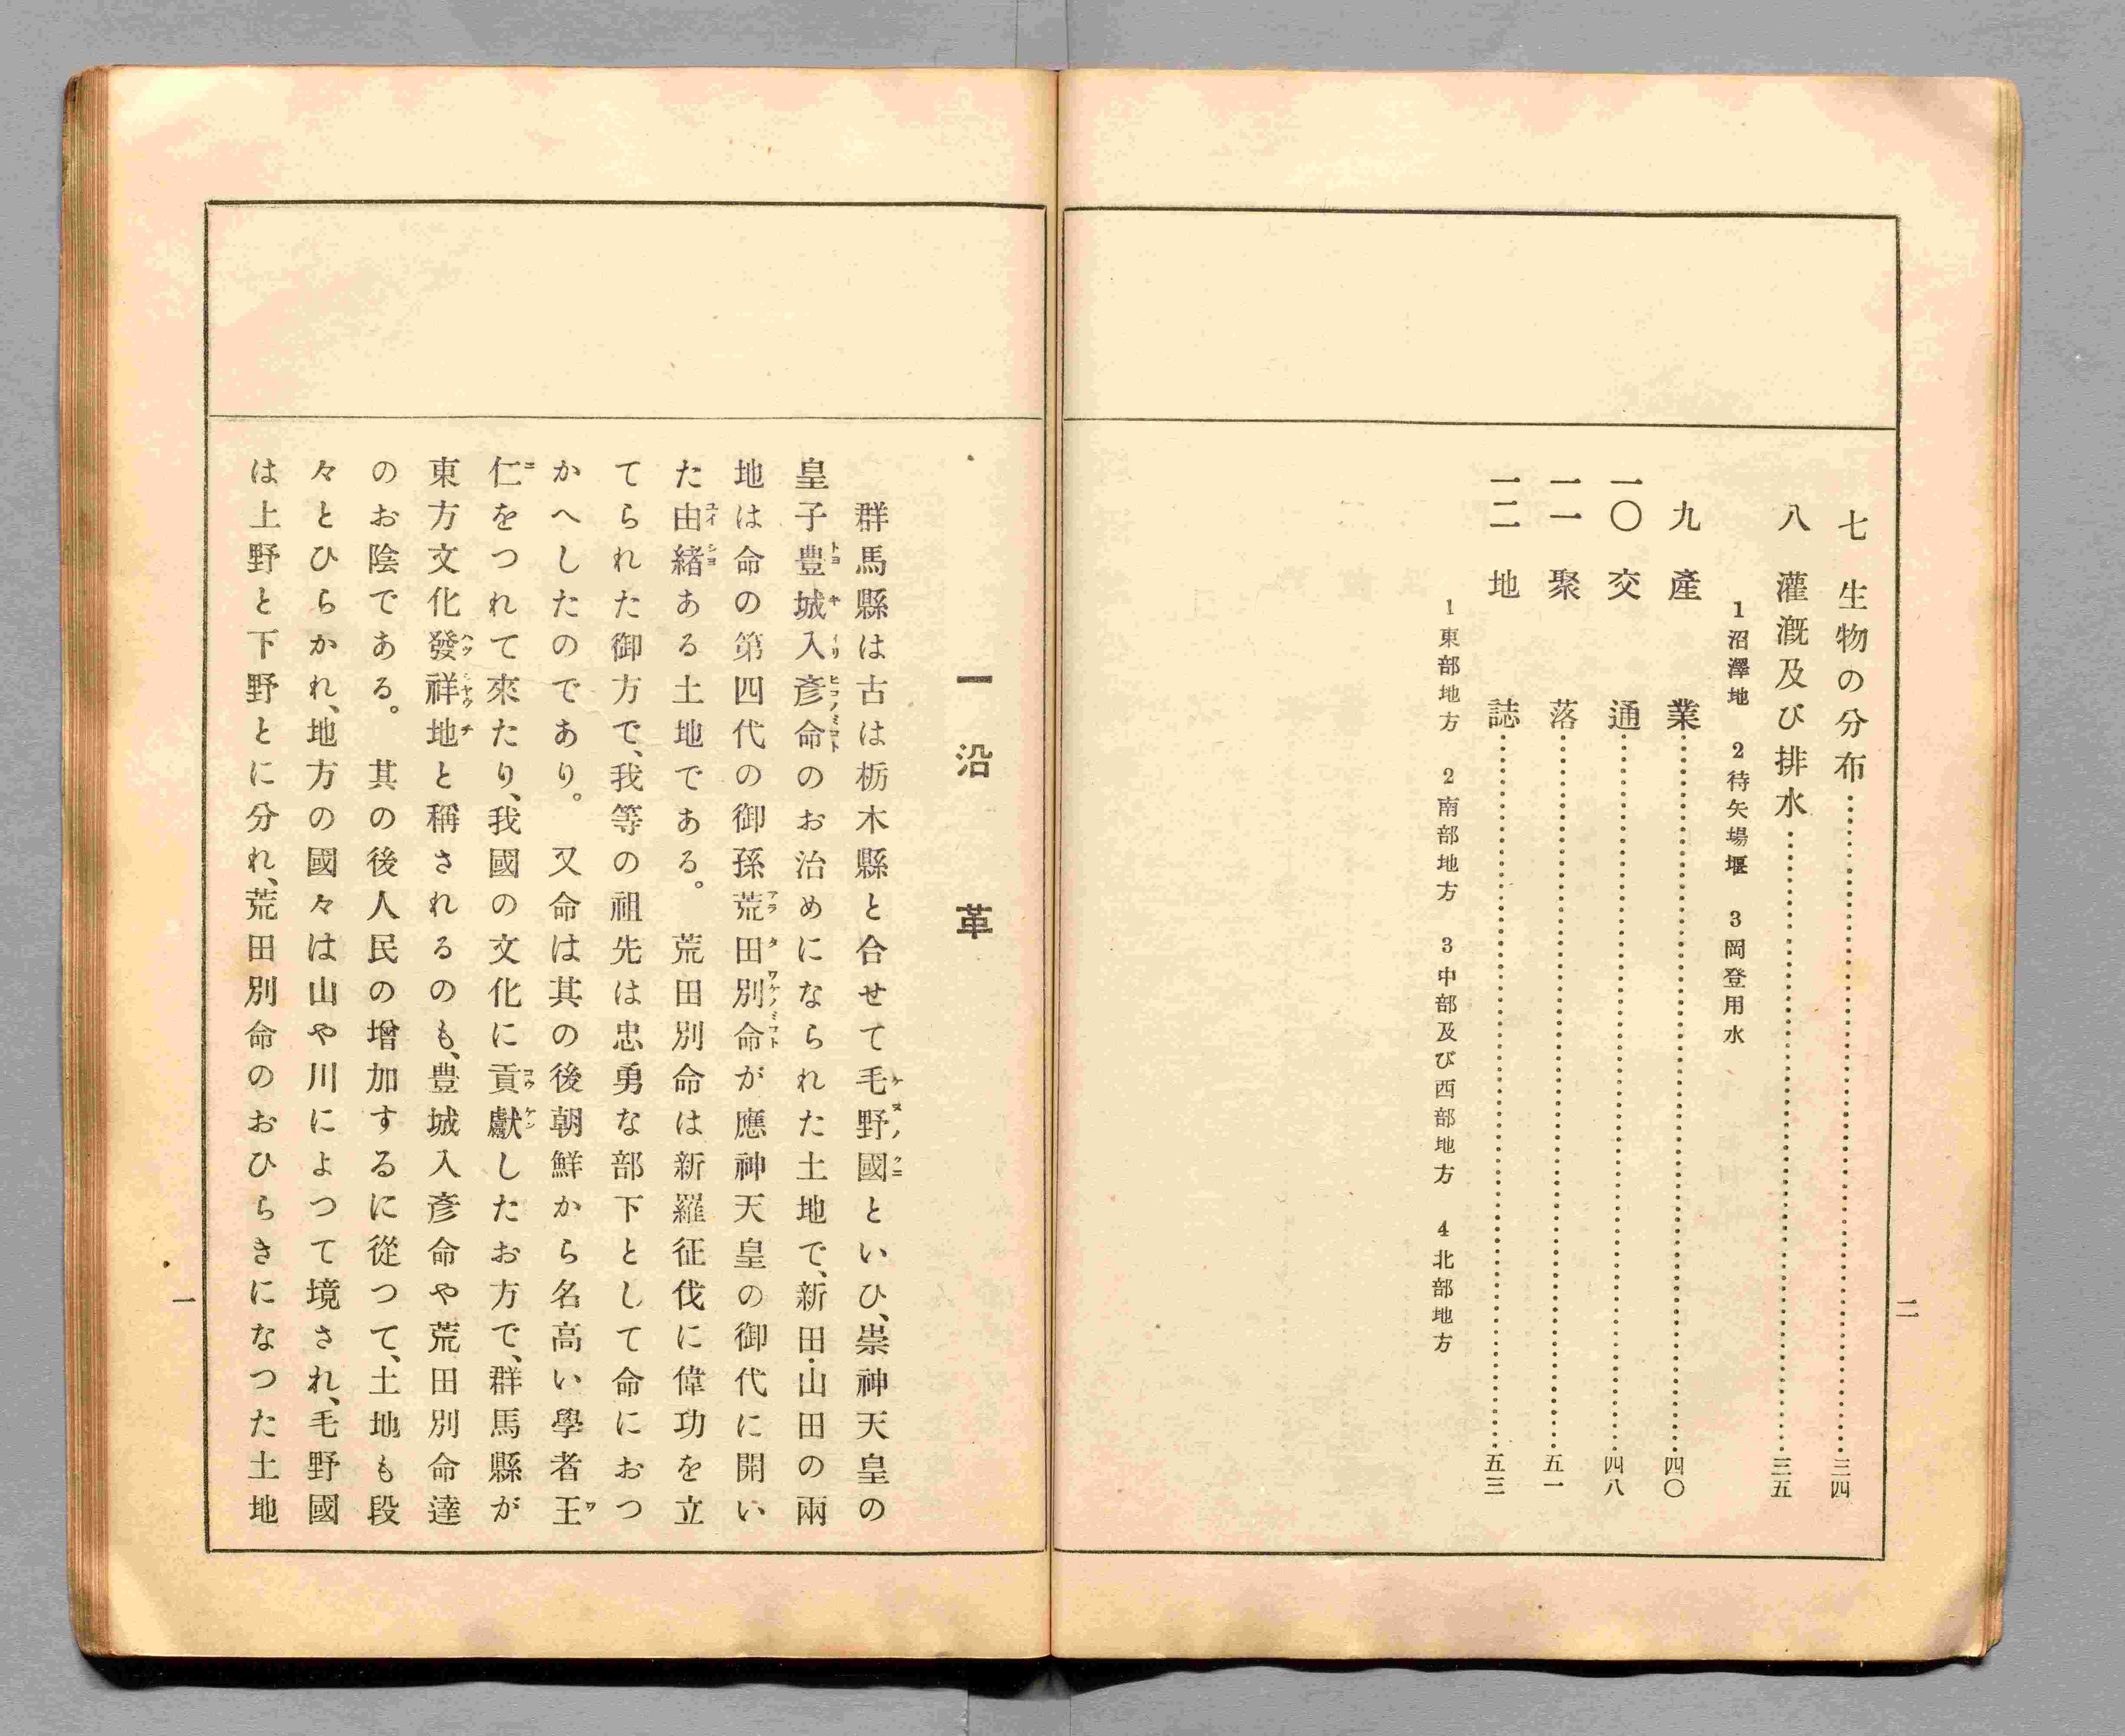 七 生物の分布……三四
八 灌漑及び排水……三五
1沼澤地 2待矢場堰 3岡登用水
九 產業……四〇
一〇 交通……四八
一一 聚落……五一
一二 地誌……五三
1東部地方 2南部地方 3中部及び西部地方 4北部地方
二
一 沿革
群馬縣は古は栃木縣と合せて毛野國といひ、崇神天皇の
皇子豊城入彥命のお治めになられた土地で、新田・山田の兩
地は命の第四代の御孫荒田別命が應神天皇の御代に開い
た由緖ある土地である。 荒田別命は新羅征伐に偉功を立
てられた御方で、我等の祖先は忠勇な部下として命におつ
かへしたのであり。 又命は其の後朝鮮から名高い學者王
仁をつれて來たり、我國の文化に貢獻したお方で、群馬縣が
東方文化發祥地と稱されるのも、豊城入彥命や荒田別命達
のお陰である。 其の後人民の增加するに從つて、土地も段
々とひらかれ、地方の國々は山や川によつて境され、毛野國
は上野と下野とに分れ、荒田別命のおひらきになつた土地
一